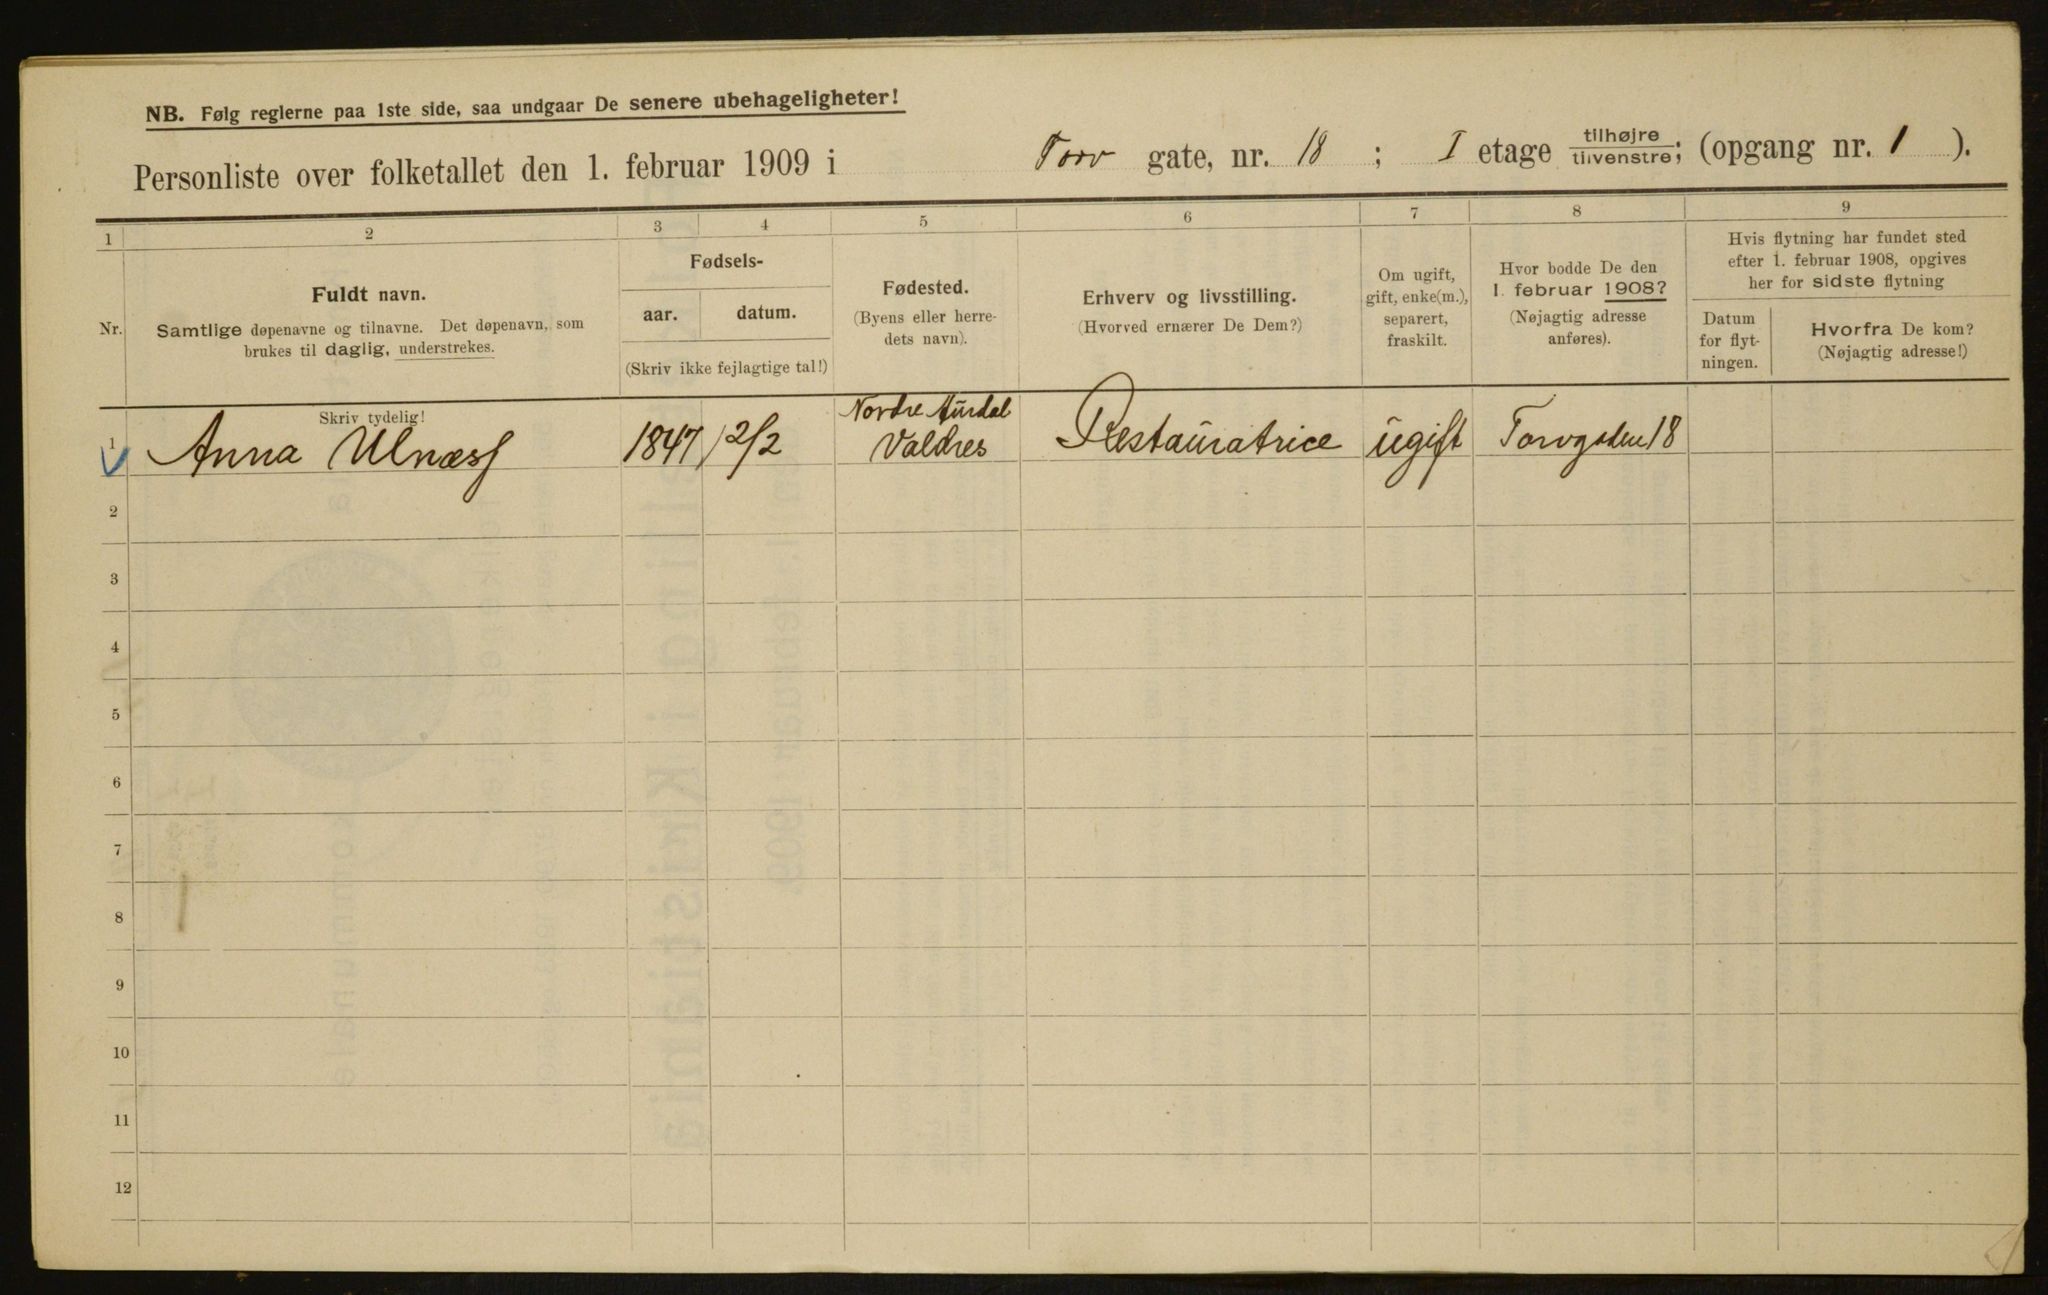 NB. Følg reglerne paa 1ste side, saa undgaar De senere ubehageligheter!
Personliste over folketallet den 1. februar 1909 i Torv gate, nr. 18 ; I etage tilhøjre/tilvenstre; (opgang nr. 1 ).
1 2 3 4 5 6 7 8 9
Nr.
Fuldt navn.
Samtlige døpenavne og tilnavne. Det døpenavn, som
brukes til daglig, understrekes.
Fødsels-
aar. datum.
(Skriv ikke fejlagtige tal!)
Fødested.
(Byens eller herre-
dets navn).
Erhverv og livsstilling.
(Hvorved ernærer De Dem?)
Om ugift,
gift, enke(m.),
separert,
fraskilt.
Hvor bodde De den
1. februar 1908?
(Nøjagtig adresse
anføres).
Hvis flytning har fundet sted
efter 1. februar 1908, opgives
her for sidste flytning
Datum
for flyt-
ningen.
Hvorfra De kom?
(Nøjagtig adresse!)
Skriv tydelig!
Nordre Aurdal
1 Anna Ulnæss 1847 2/2 Valdres Restauratrice ugift Torvgaden 18
2
3
4
5
6
7
8
9
10
11
12